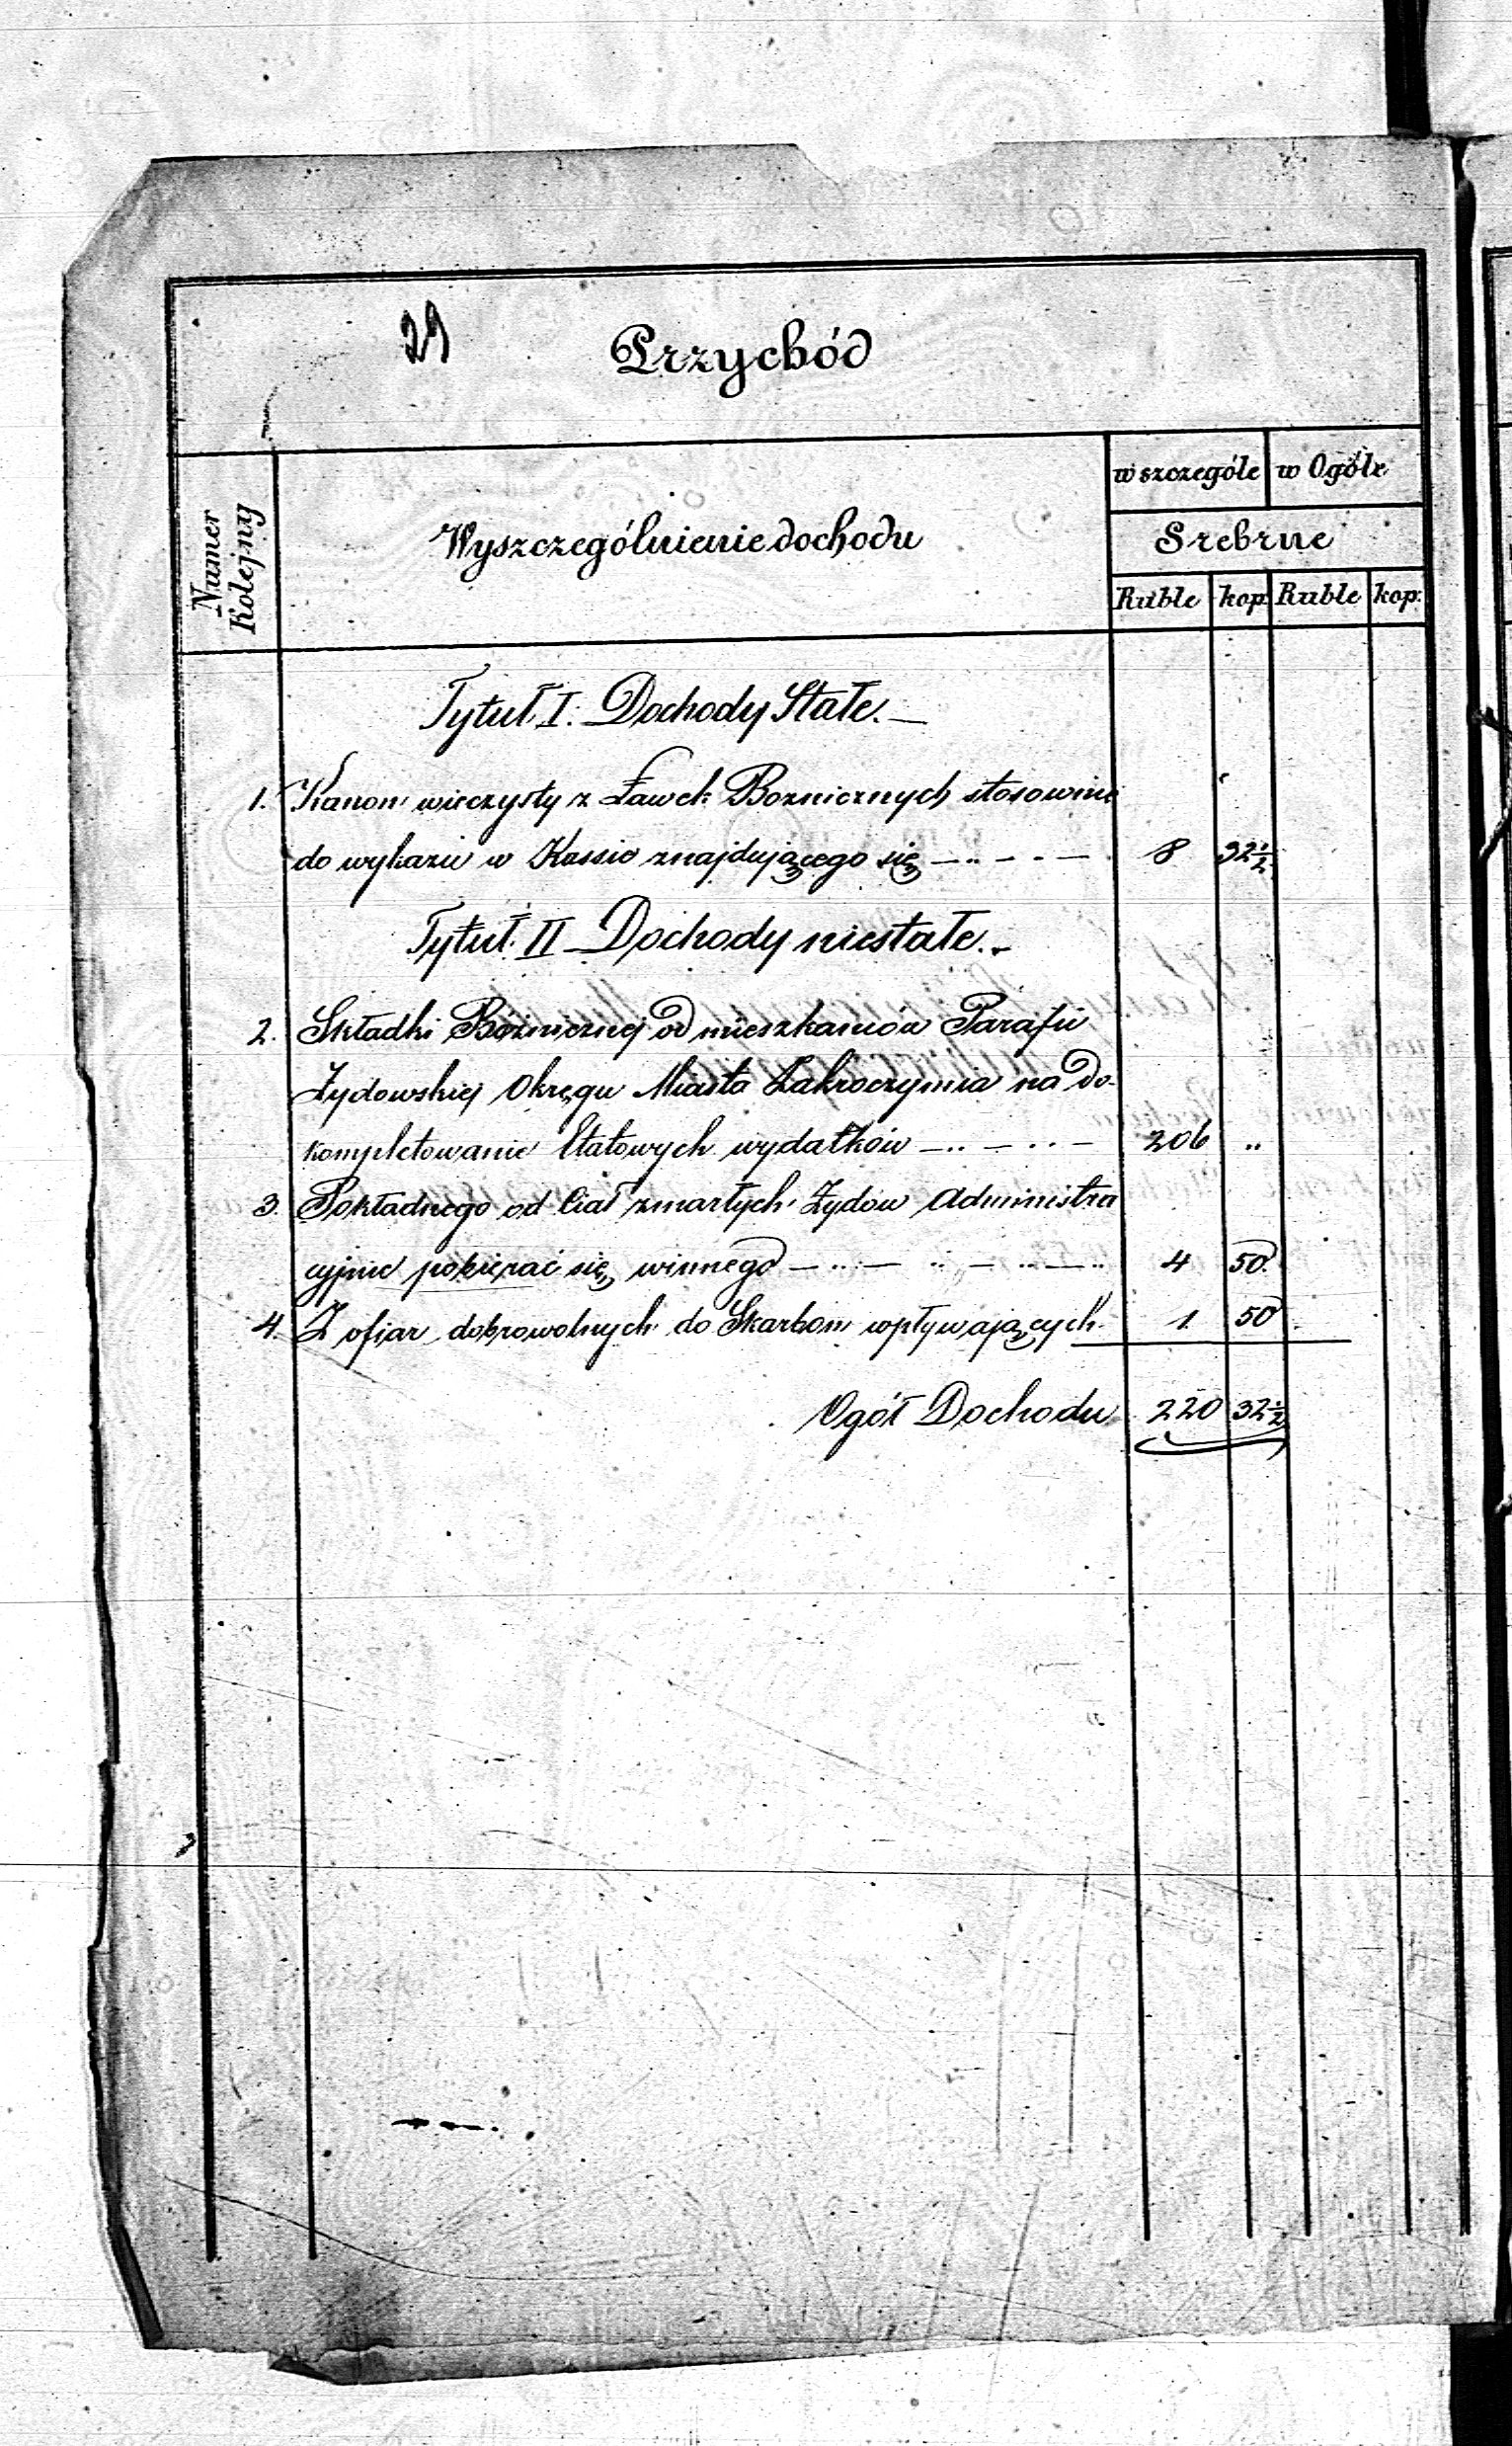 29
Przychód
Numer Kolejny
Wyszczególnienie dochodu
w szczególe
w Ogóle
Srebrne
Ruble
kop.
Ruble
kop.
Tytuł I. Dochody Stałe.
1. Kanon wieczysty z Ławek Boznicznych stosownie
do wykazu w Kassie znajdującego się — .. — . — 8 32½
Tytuł II Dochody niestałe.
2. Składki Bożnicznej od mieszkańców Parafii
Żydowskiej Okręgu Miasta Zakroczymia na do-
kompletowanie Etatowych wydatków — .. — .. — 206 ..
3. Pokładnego od Ciał zmarłych Żydów Administra
cyjnie pobierać się winnego — .. — .. — .. — .. 4 50.
4. Z ofiar dobrowolnych do Skarbon wpływających 1. 50
Ogół Dochodu 220 32½